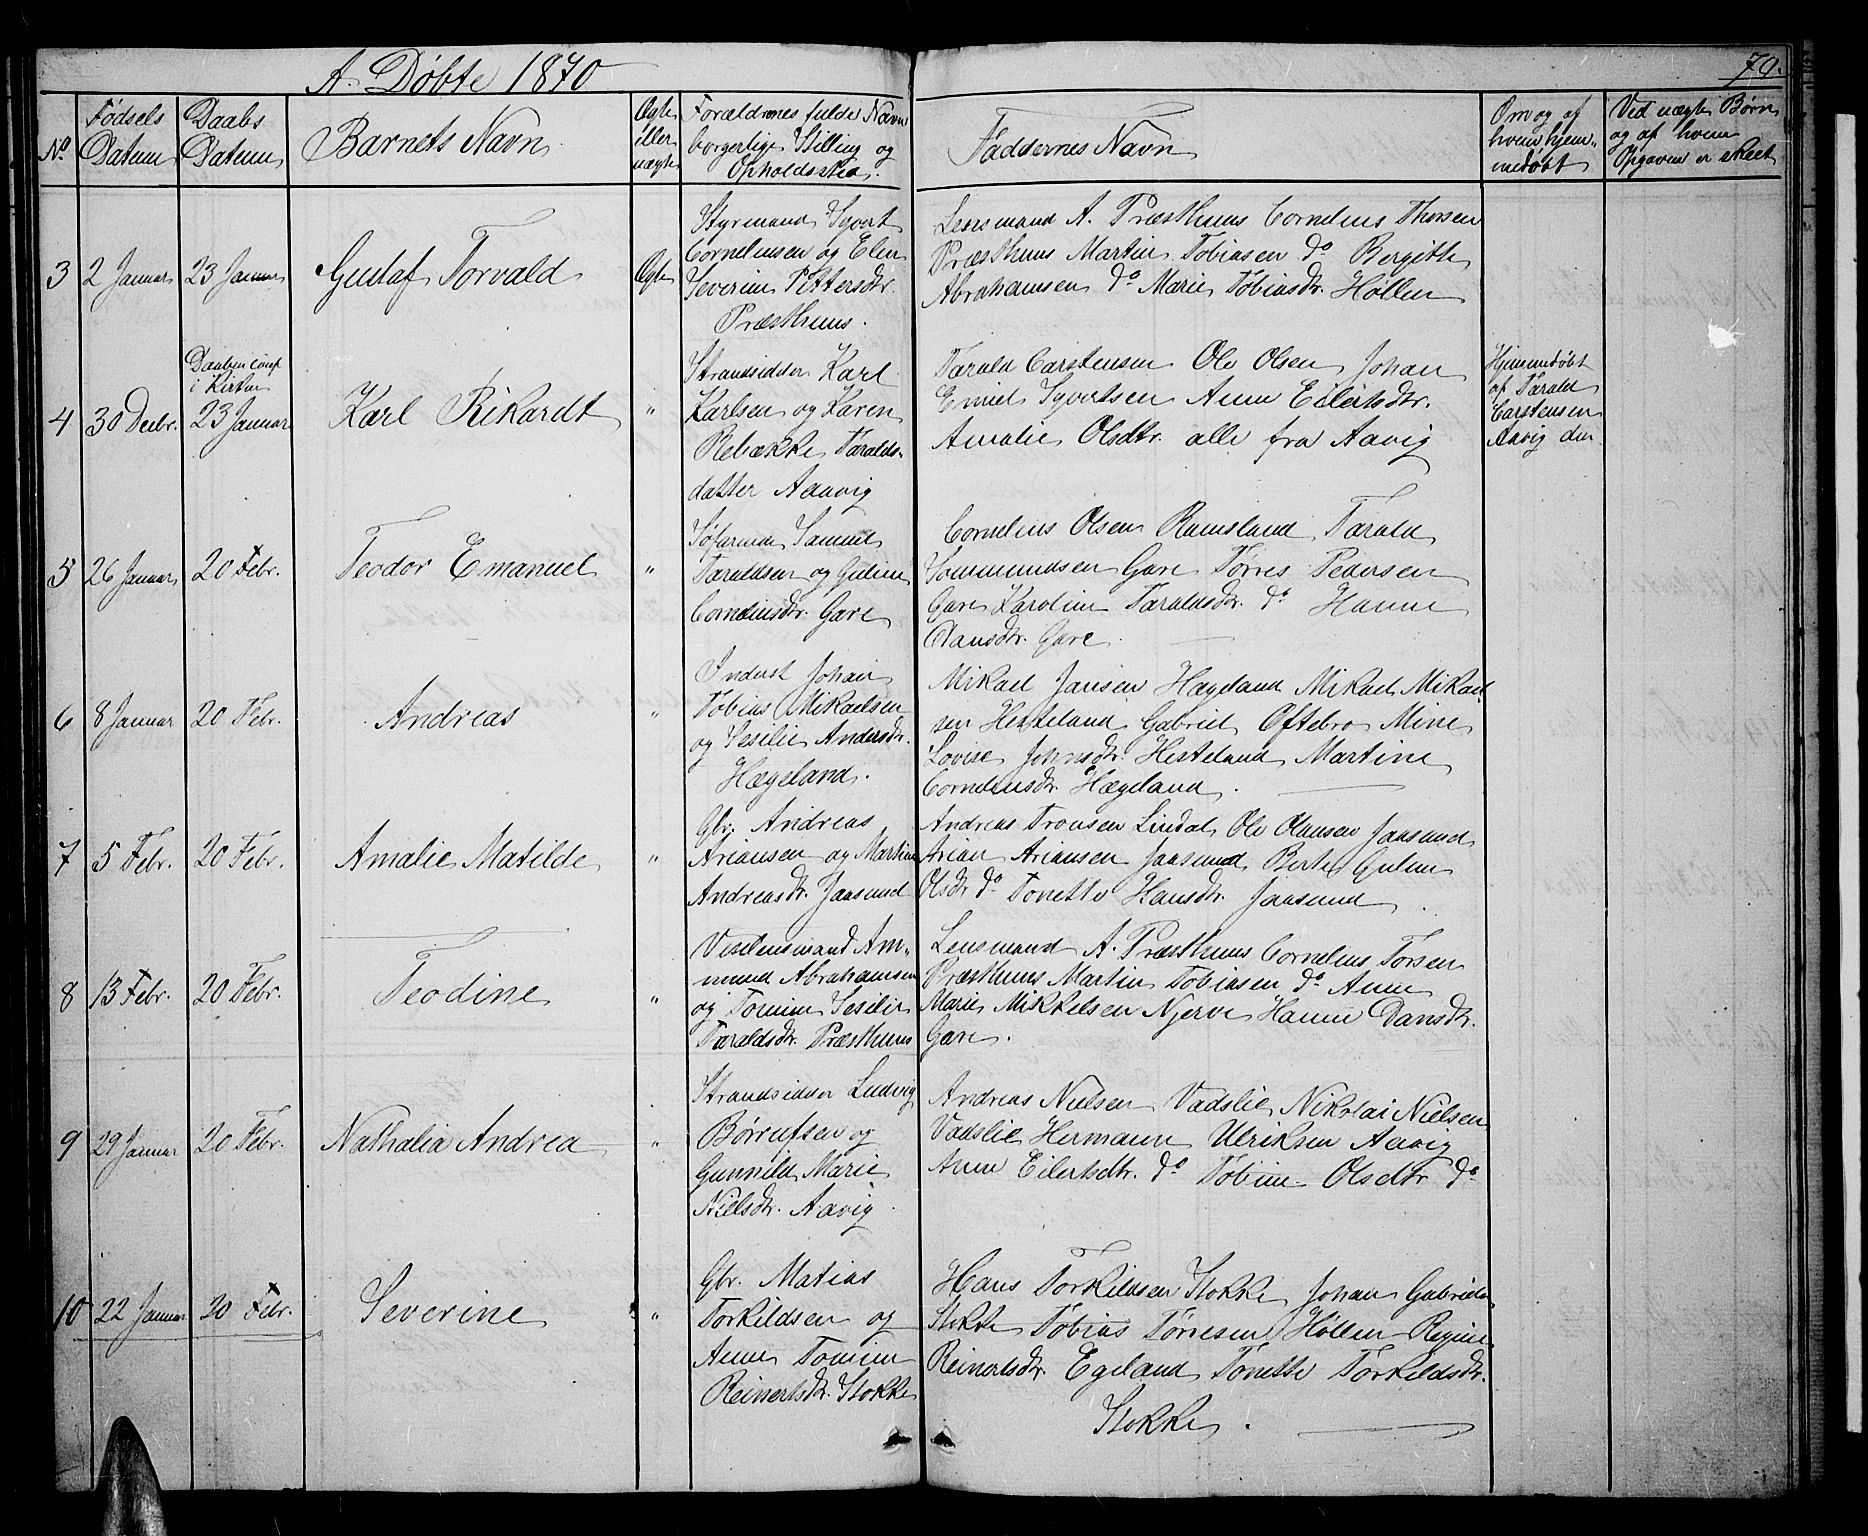 A. Døbte 1870
79.
No.
Fødsels Datum
Daabs Datum
Barnets Navn
Ægte eller uægte
Forældrenes fulde Navn
borgerlige Stilling og
Opholdssted.
Faddernes Navn
Om og af
hvem hjem-
medøbt
Ved uægte Børn
og af hvem
Opgaven er skeet
3
2 Januar
23 Januar
Gustaf Torvald
Ægte
Styrmand Syvert
Corneliusen og Elen
Severine Pettersdtr.
Præsthuus.
Lensmand A. Præsthuus Cornelius Thorsen
Præsthuus Martin Tobiasen do Bergithe
Abrahamsen do Marie Tobiasdtr. Høllen
4
30 Decbr.
Daaben conf
i Kirken
23 Januar
Karl Rikardt
"
Strandsidder Karl
Karlsen og Karen
Rebække Taralds-
datter Aaavig
Tarald Carstensen Ole Olsen Johan
Emiel Syvertsen Anne Eilertsdtr.
Amalie Olsdtr. alle fra Aavig
Hjemmedøbt
af Tarald
Carstensen
Aavig den
5
26 Januar
20 Febr.
Teodor Emanuel
"
Søfarende Samuel
Taraldsen og Guline
Corneliusdtr. Gare
Cornelius Olsen Ramsland Tarald
Sommundsen Gare Tørres Pedersen
Gare Karoline Taraldsdtr. do Hanne
Dansdtr. Gare.
6
8 Januar
20 Febr.
Andreas
"
Inderst Johan
Tobias Mikaelsen
og Sesilie Andersdtr.
Hægeland.
Mikael Jansen Hægeland Mikael Mikael-
sen Hesteland Gabriel Oftebro Mine
Lovise Johnsdtr. Hesteland Martine
Corneliusdtr. Hægeland.
7
5 Febr.
20 Febr.
Amalie Matilde
"
Gbr. Andreas
Ariansen og Martine
Andreasdtr. Jaasund
Andreas Tronsen Lindal Ole Olausen Jaasund
Arian Ariansen Jaasund Berte Guline
Olsdtr do Tonette Hansdtr. Jaasund
8
13 Febr.
20 Febr.
Teodine
"
Vicelensmand Am-
mund Abrahamsen
og Tomine Sesilie
Taraldsdtr. Præsthuus
Lensmand A. Præsthuus Cornelius Torsen
Præsthuus Martin Tobiasen do Anne
Marie Mikkelsen Njerve Hanne Dansdtr.
Gare.
9
29 Januar
20 Febr.
Nathalia Andrea
"
Strandsidder Ludvig
Børrufsen og
Gunnild Marie
Nielsdtr. Aavig
Andreas Nielsen Vadslie Nikolai Nielsen
Vadslie Hermann Ulriksen Aavig
Anne Eilertsdtr. do Tobine Olsdtr do
10
22 Januar
20 Febr.
Severine
"
Gbr. Matias
Torkildsen og
Anne Tomine
Reinertsdtr. Stokke
Hans Torkildsen Stokke Johan Gabriels.
Stokke Tobias Tønnesen Høllen Regine
Reinertsdtr. Egeland Tonette Torkildsdtr.
Stokke.